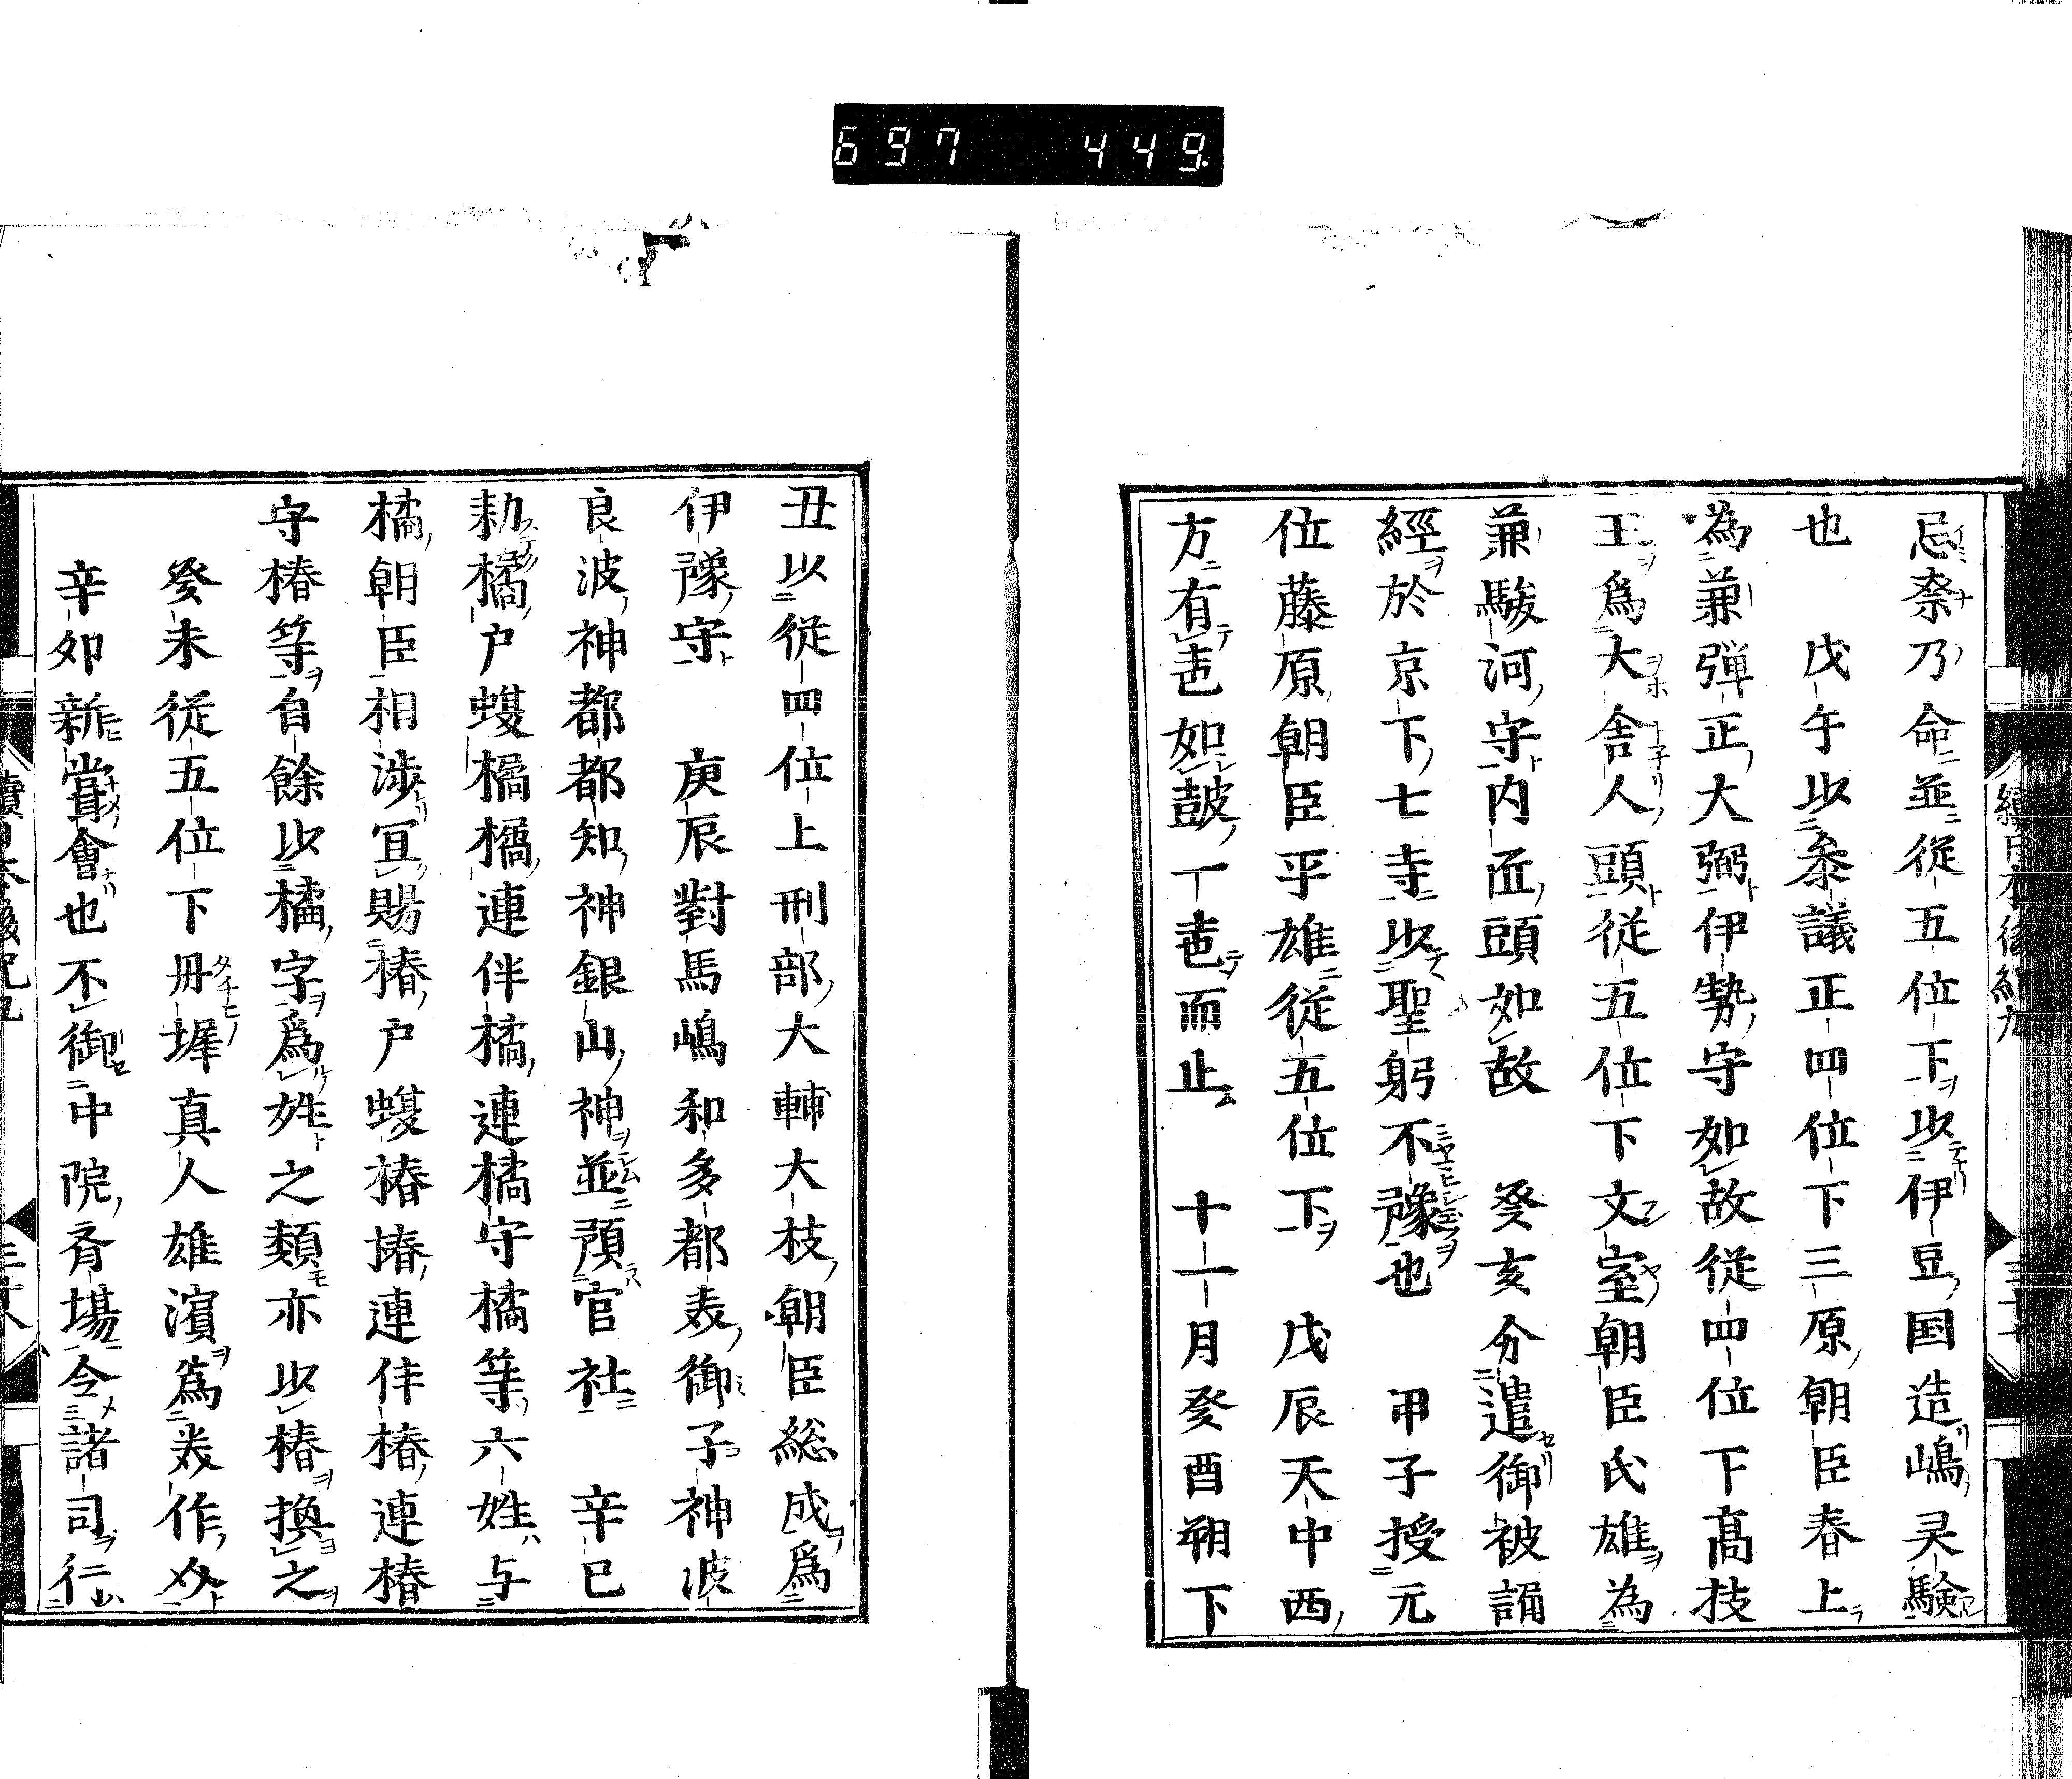 697 449.
忌奈乃命並從五位下以伊豆国造嶋灵験
也 戊午以叅議正四位下三原朝臣春上
為兼弾正大弼伊勢守如故從四位下髙枝
王爲大舎人頭從五位下文室朝臣氏雄為
兼駿河守内匠頭如故 癸亥分遣御被誦
經於京下七寺以聖躬不豫也 甲子授元
位藤原朝臣乎雄從五位下 戊辰天中西
方有声如鼓一声而止 十一月癸酉朔丁
丑以從四位上刑部大輔大枝朝臣総成爲
伊豫守 庚辰對馬嶋和多都美御子神波
良波神都都知神銀山神並預官社 辛巳
勅橘戸蝮橘橘連伴橘連橘守橘等六姓与
橘朝臣相渉冝賜椿戸蝮椿椿連伴椿連椿
守椿等自餘以橘字爲姓之類亦以椿換之
癸未從五位下丹墀真人雄濱爲美作介
辛卯新甞會也不御中院斎場令諸司仁
續日本後紀九
續日本後紀九